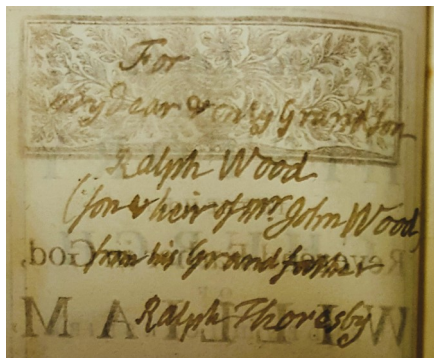 For
my dear & only Grandson
Ralph Wood
(son & heir of Mr. John Wood)
from his Grandfather
Ralph Thoresby